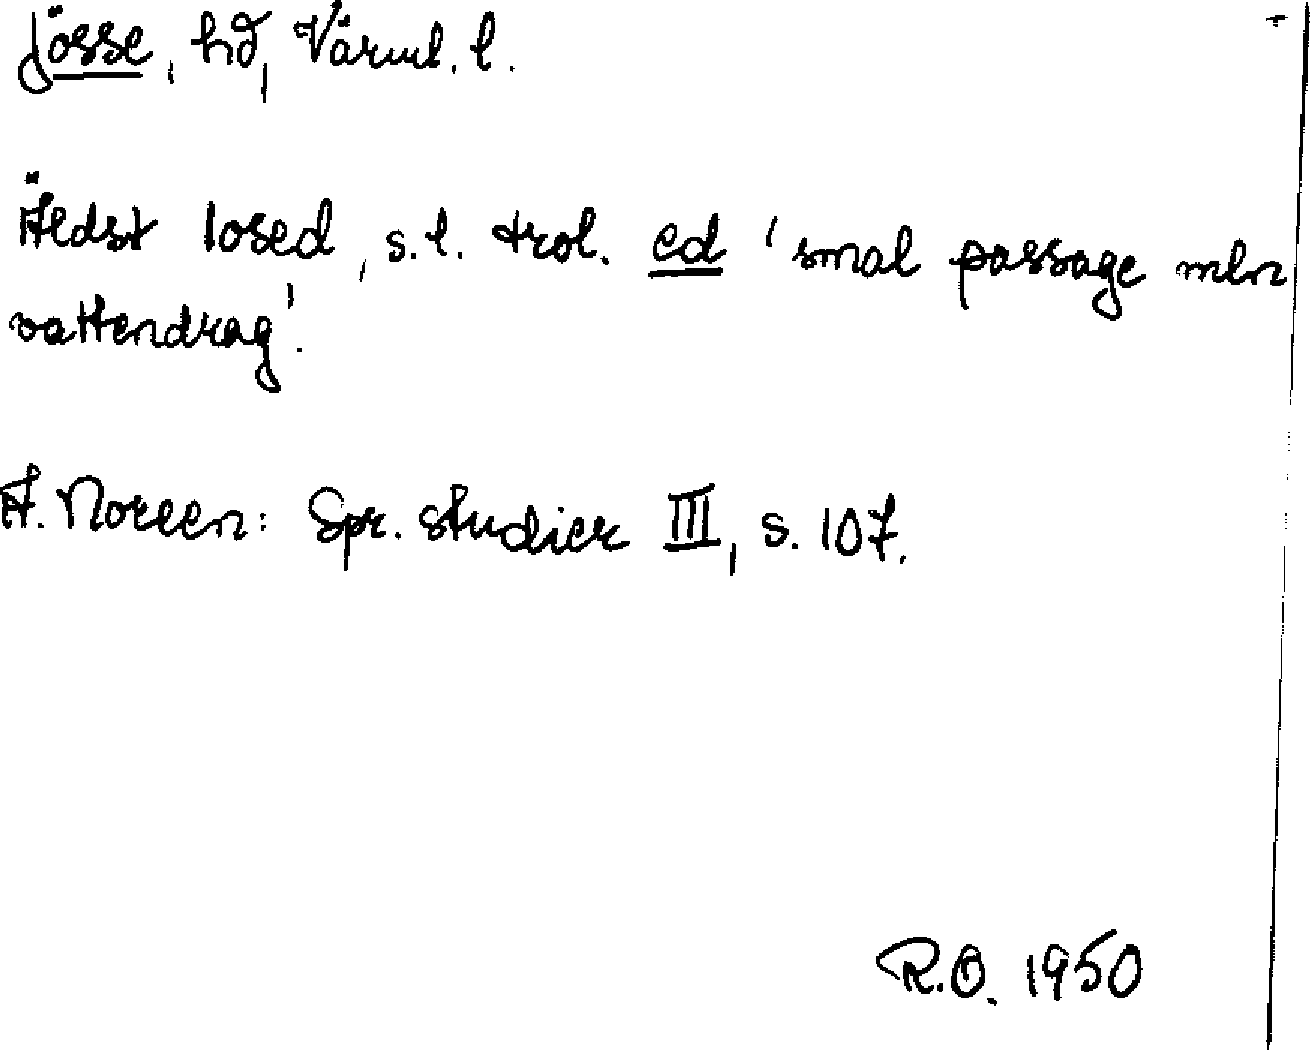 Jösse, hd, Värml. l.
Äldst Iosed, s. l. trol. ed 'smal passage mln
vattendrag'.
A. Noreen: Spr. studier III, s. 107.
R.O. 1950